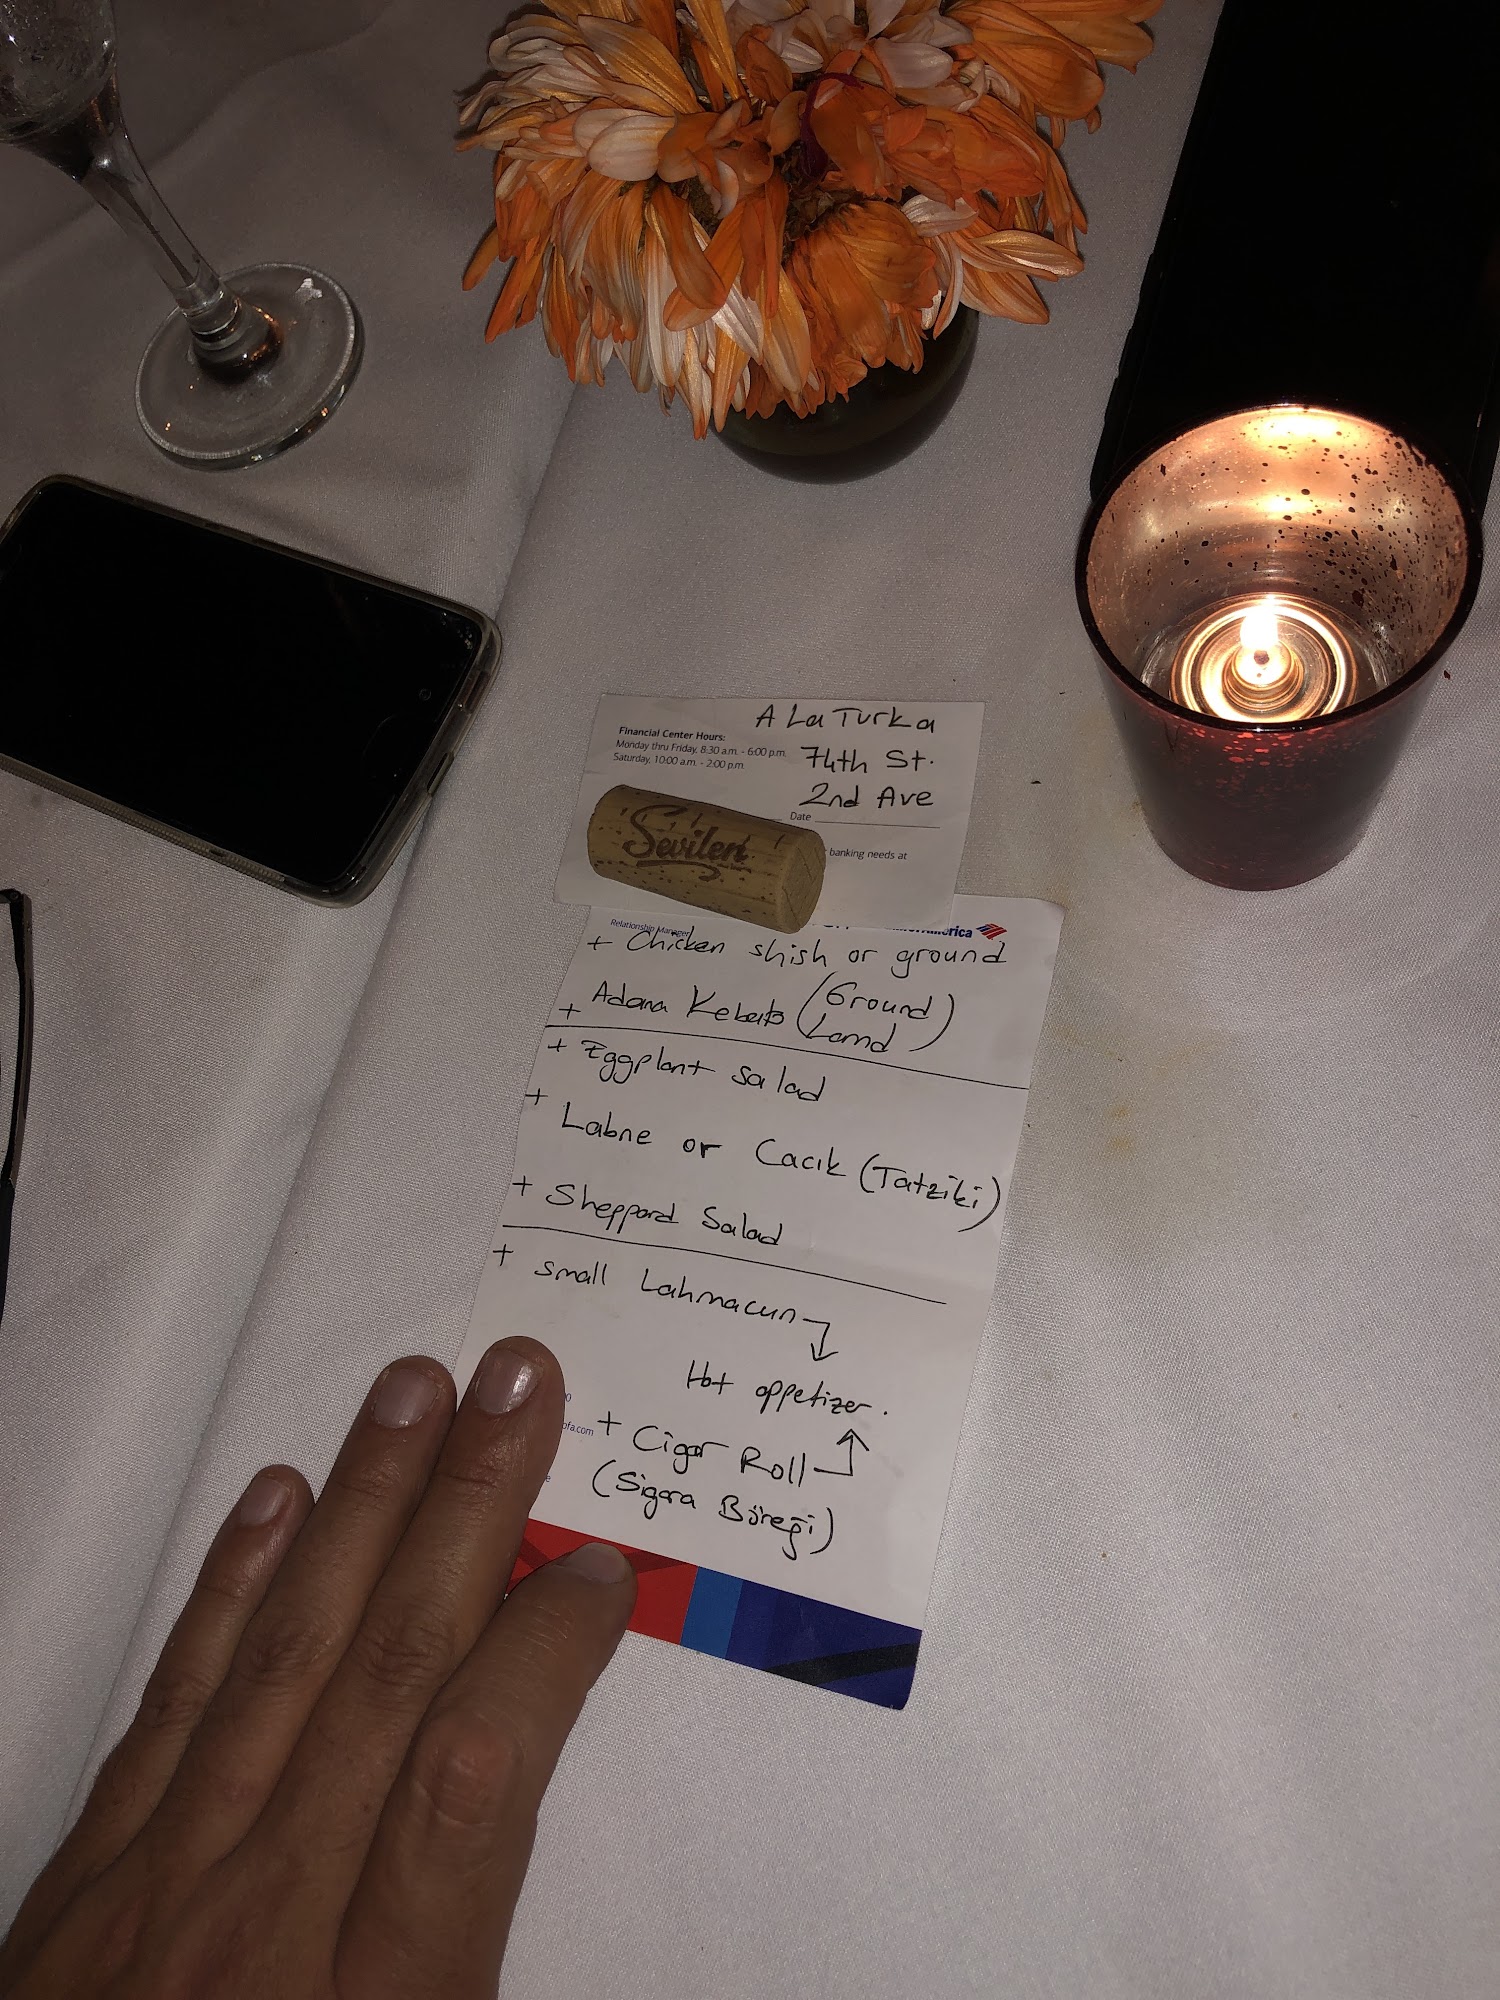 A La Turka
Financial Center Hours:
Monday thru Friday, 8:30 a.m. - 6:00 p.m.
74th St.
Saturday, 10:00 a.m. - 2:00 p.m.
2nd Ave
Date
Sevilen
banking needs at
Relationship Manager
erica
+ Chicken shish or ground
+ Adana Kebab (Ground
Lamd)
+ Eggplant salad
+ Labne or Cacık (Tatziki)
+ Sheppard Salad
+ small Lahmacun
Hot appetizer.
ofa.com
+ Cigar Roll
(Sigara Böreği)